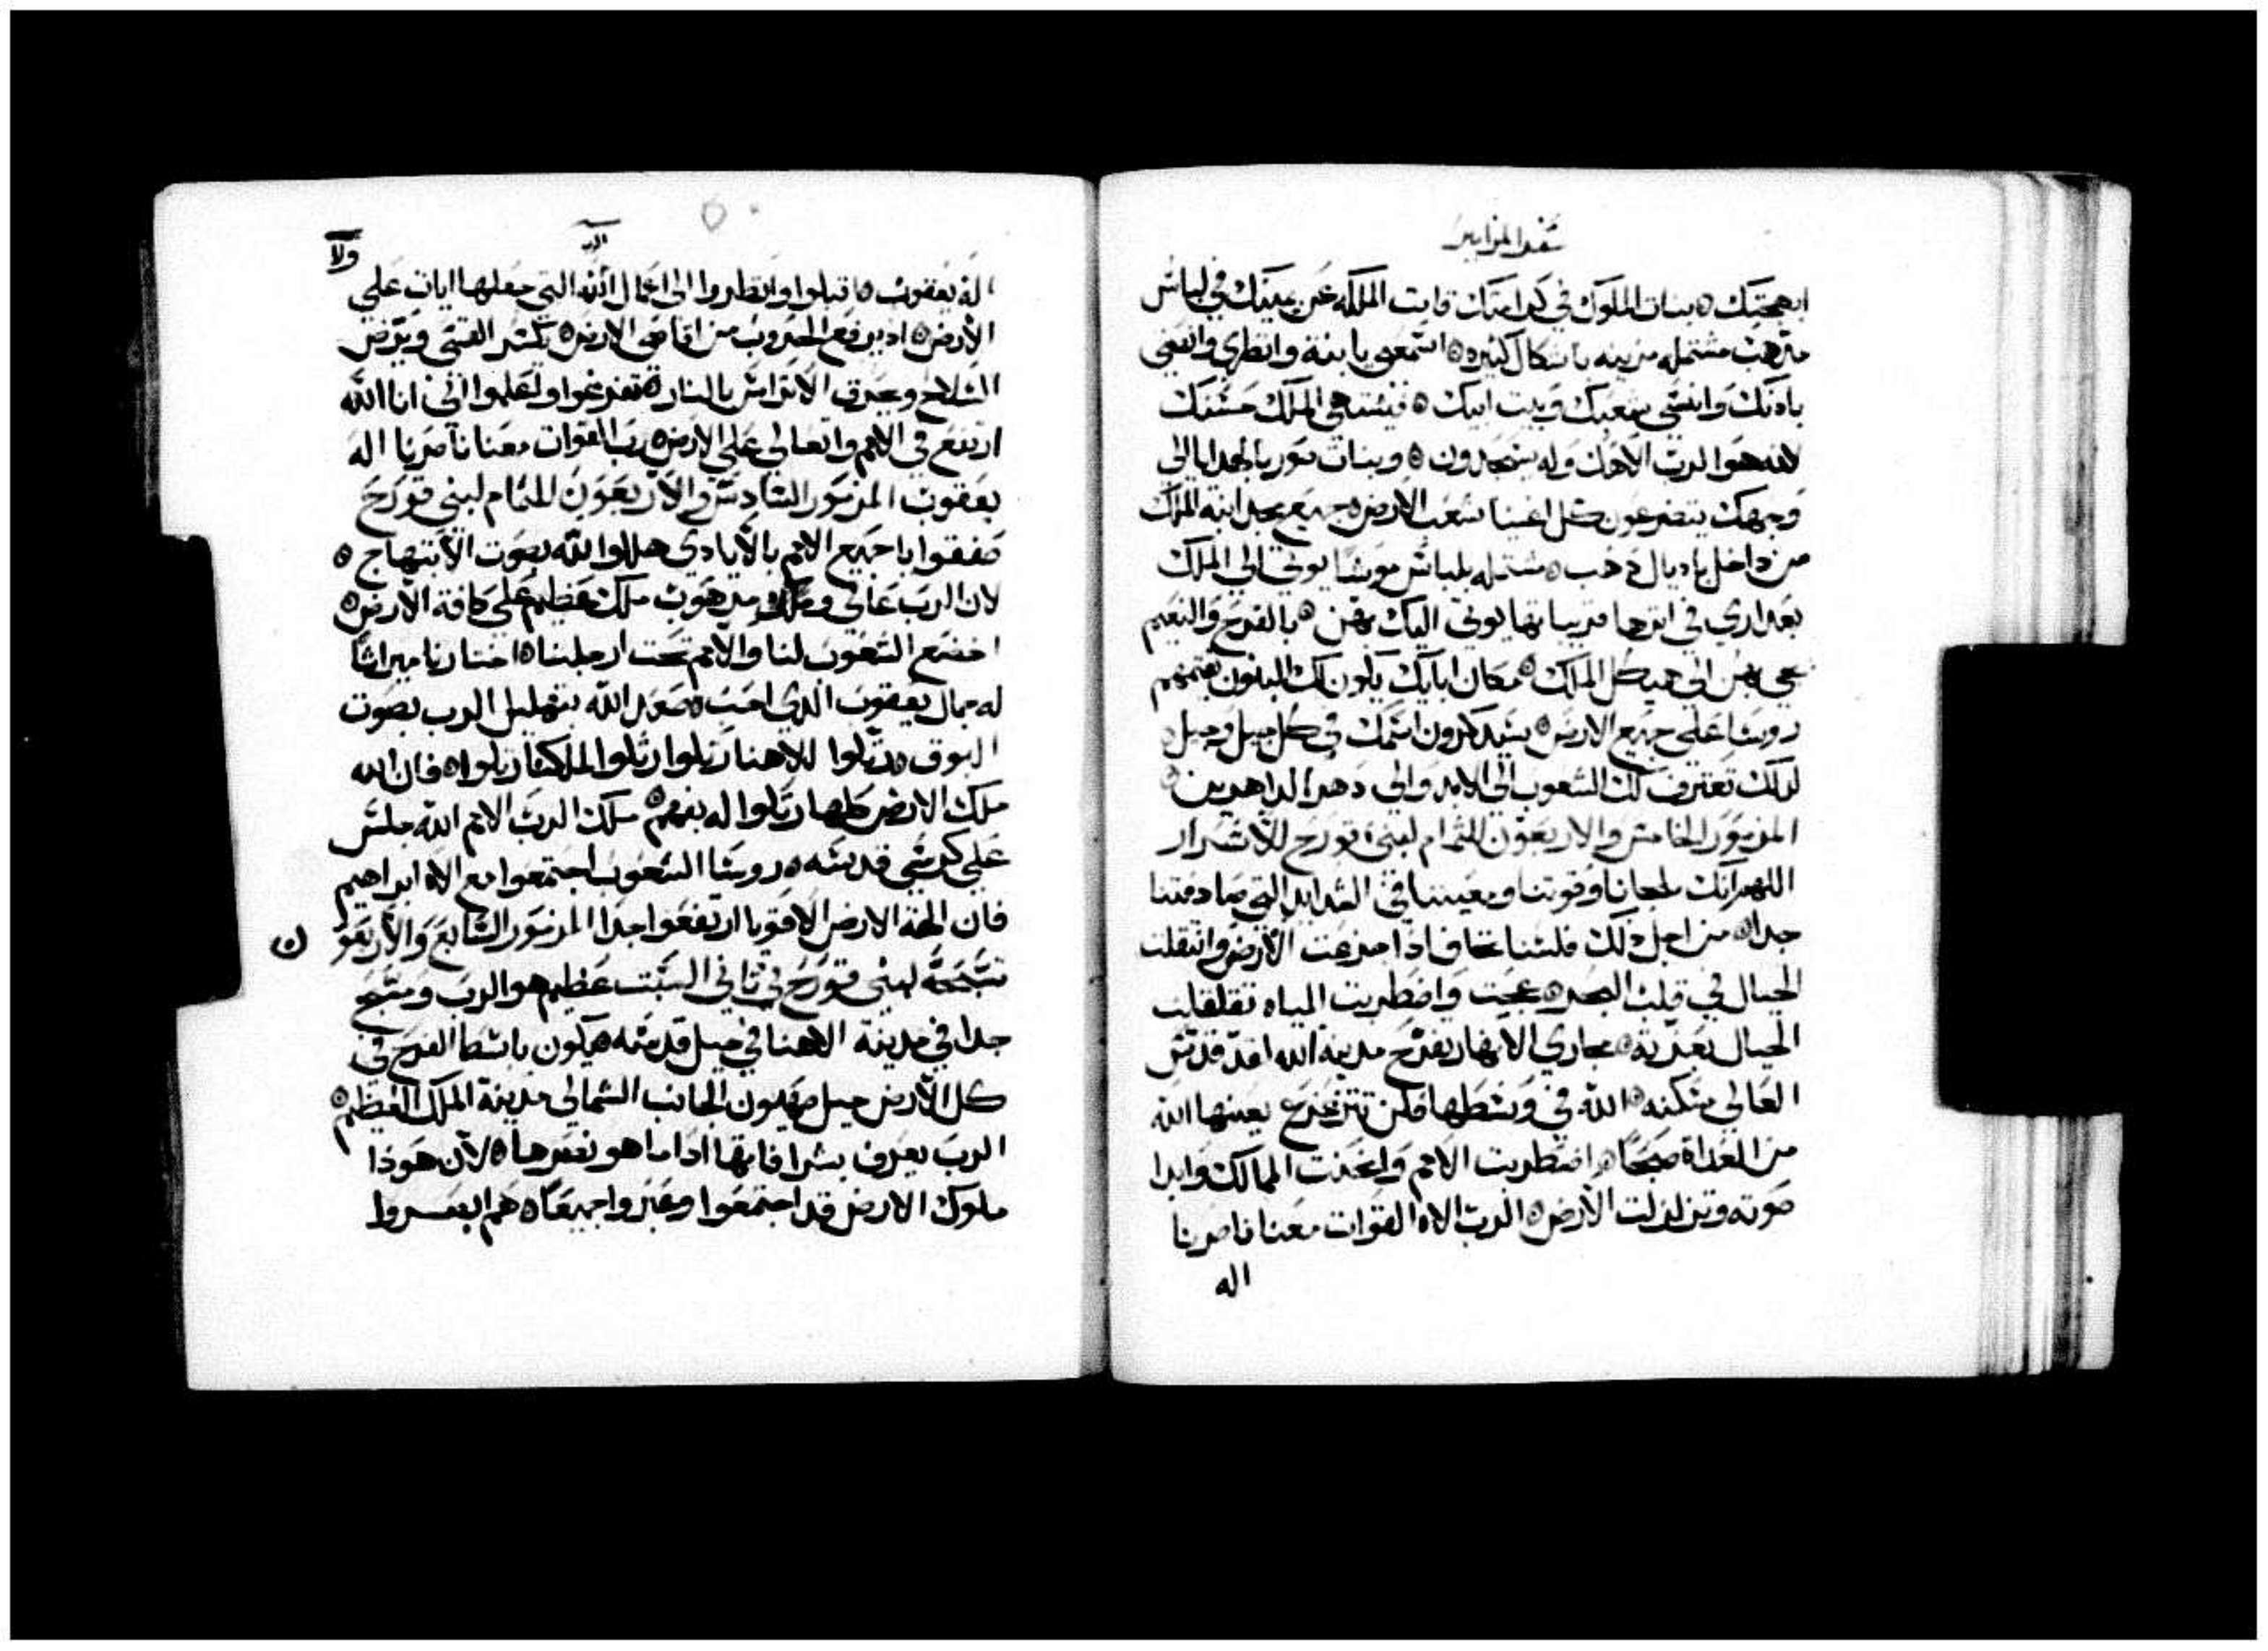 سفر المزامير
ابهجتك ۞ بنات الملوك في كرامتك قامت الملكه عن يمينك في لباس
مذهب مشتمله مزينه باشكال كثيره ۞ استمعي يا بنة وانظري وانصتي
باذنك وانسي شعبك وبيت ابيك ۞ فيشتهي الملك حسنك
لانه هو الرب الاهك وله يسجدون ۞ وبنات صور بالهدايا الي
وجهك يتضرعون كل اغنيا شعب الارض ۞ جميع مجد ابنه الملك
من داخل باديال دهب ۞ مشتمله بلباس موشا يوتي الي الملك
بعداري في اترها قريباتها يوتي اليك بهن ۞ بالفرح والنعيم
يجي بهن الي هيكل الملك ۞ مكان ابايك يكون لك البنون تقيمهم
روسا علي جميع الارض ۞ سيدكرون اسمك في كل جيل وجيل
لدلك تعترف لك الشعوب الي الابد والي دهر الداهرين ۞
المزمور الخامس والاربعون للتمام لبني قورح للاسرار
اللهم انك ملجانا وقوتنا ومعيننا في الشدايد التي صادفتنا
جدا ۞ من اجل دلك فلسنا نخاف ادا جزعت الارض وانتقلت
الجبال في قلب البحر ۞ عجت واضطربت المياه تقلقلت
الجبال بعزته ۞ مجاري الانهار تفرح مدينة الله لقد قدس
العالي مسكنه ۞ الله في وسطها فلن تتزعزع يعينها الله
من الغداة صبحا ۞ اضطربت الامم وانحنت الممالك وابدا
صوته وتزلزلت الارض ۞ الرب الاه القوات معنا ناصرنا
اله
ولا
اله يعقوب ۞ اقبلوا وانظروا الي اعمال الله التي جعلها ايات علي
الارض ۞ اد يرفع الحروب من اقاصي الارض ۞ يكسر القسي ويرض
السلاح ويحرق الاتراس بالنار ۞ تفرغوا واعلموا اني انا الله
ارتفع في الامم واتعالي علي الارض ۞ رب القوات معنا ناصرنا اله
يعقوب المزمور السادس والاربعون للتمام لبني قورح
صفقوا يا جميع الامم بالايادي هللوا لله بصوت الابتهاج ۞
لان الرب عالي ومرهوب ملك عظيم علي كافة الارض ۞
اخضع الشعوب لنا والامم تحت ارجلنا ۞ اختارنا ميراثا
له جمال يعقوب الدي احب ۞ صعد الله بتهليل الرب بصوت
البوق ۞ رتلوا للاهنا رتلوا رتلوا لملكنا رتلوا ۞ فان الله
ملك الارض كلها رتلوا له بفهم ۞ ملك الرب الامم الله جلس
علي كرسي قدسه ۞ روسا الشعوب اجتمعوا مع الاه ابراهيم
فان الهة الارض الاقويا ارتفعوا جدا المزمور السابع والاربعو
ن
تسبحة لبني قورح في ثاني السبت عظيم هو الرب ومسبح
جدا في مدينة الاهنا في جبل قدسه ۞ يكون باسطا الفرح في
كل الارض جبل صهيون الجانب الشمالي مدينة الملك العظيم ۞
الرب يعرف بشرافاتها ادا ما هو نصرها ۞ لان هودا
ملوك الارض قد اجتمعوا وعبروا جميعا ۞ هم ابصروا